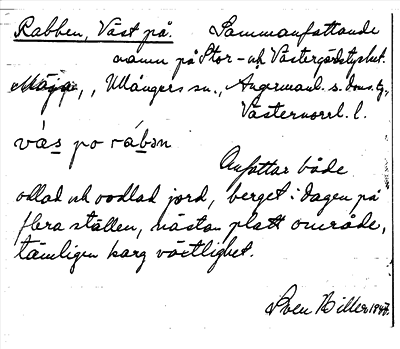 Rabben, Väst på. Sammanfattande
namn på Stor- och Västergårdstysket.
Mäja, Ullångers sn., Ångermanl. s. doms.
Västernorrl. l.
vás po rábən
Omfattar både
odlad och oodlad jord, berget i dagen på
flera ställen, nästan platt område,
tämligen karg växtlighet.
Sven Hiller 1947.